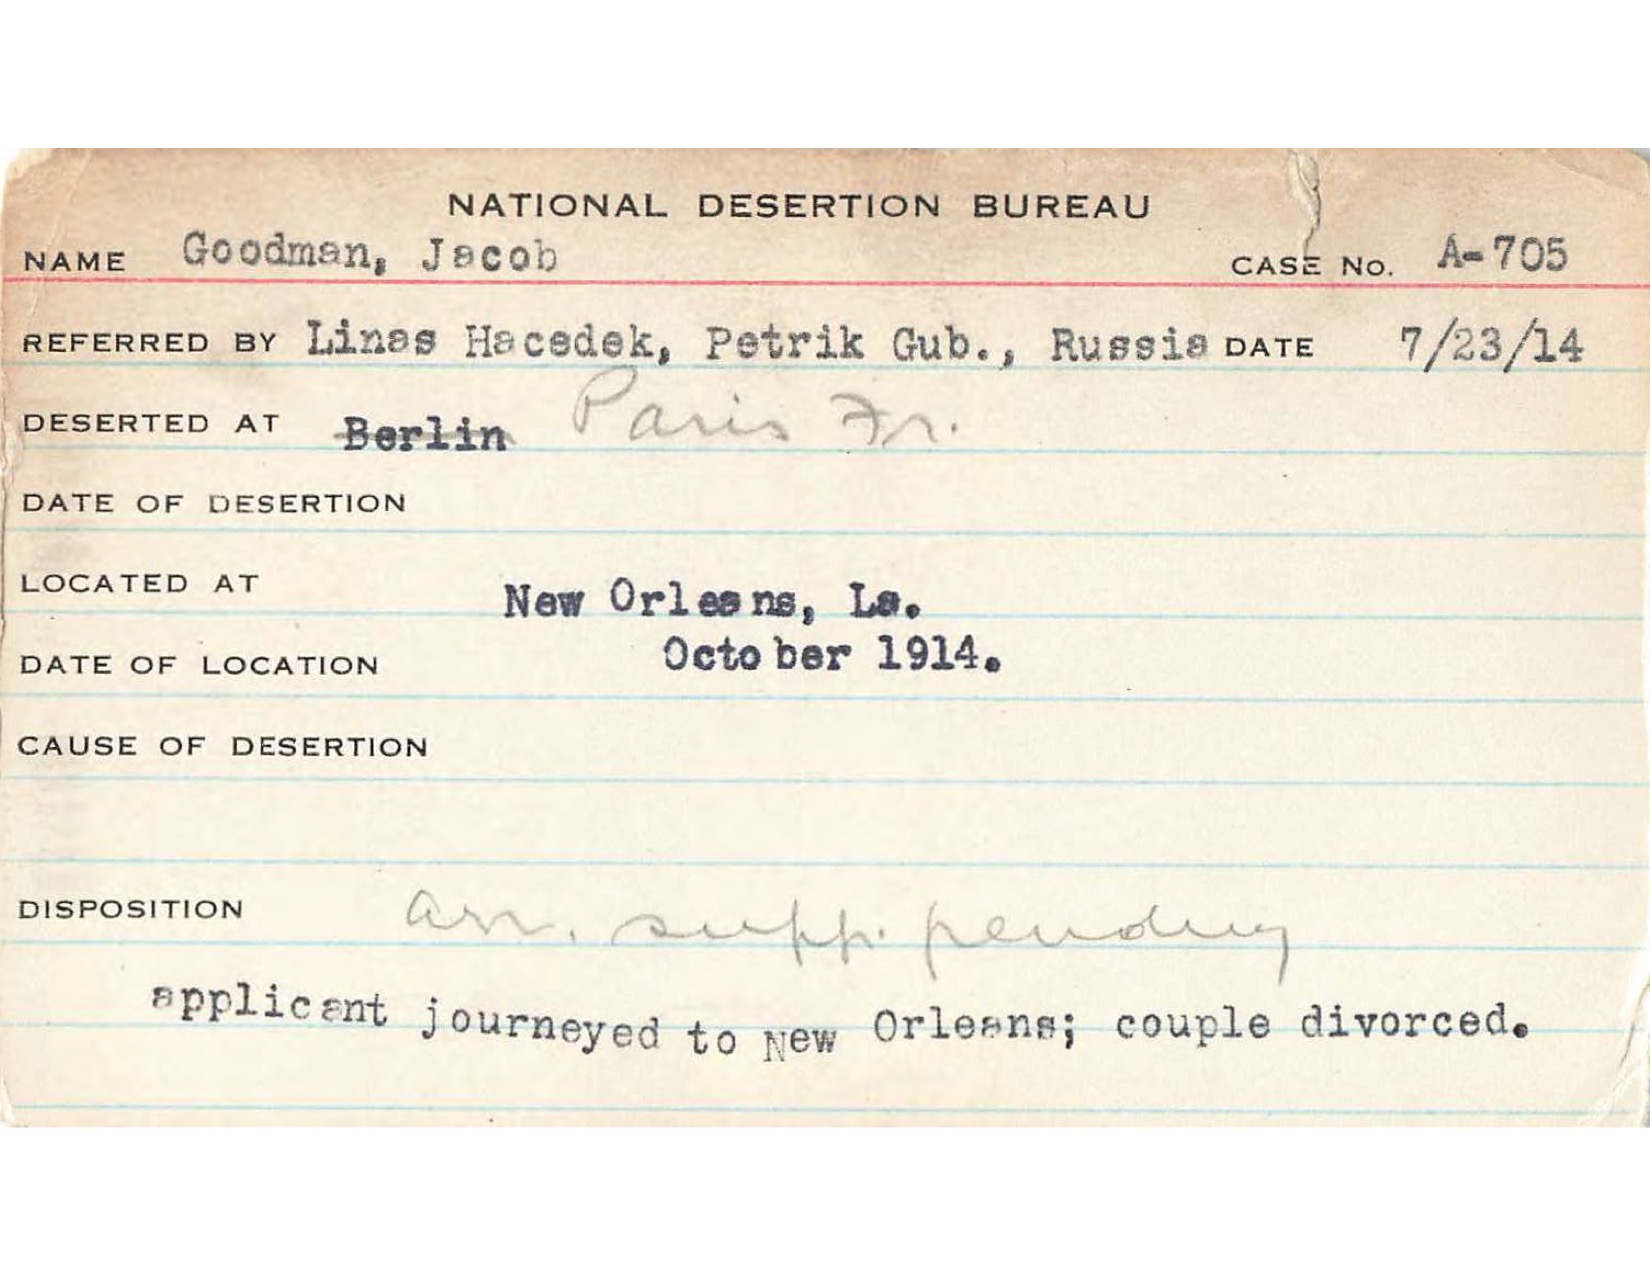 NATIONAL DESERTION BUREAU
NAME Goodman, Jacob CASE No. A-705
REFERRED BY Linas Hacedek, Petrik Gub., Russia DATE 7/23/14
DESERTED AT Berlin Paris Fr.
DATE OF DESERTION
LOCATED AT New Orleans, La.
DATE OF LOCATION October 1914.
CAUSE OF DESERTION
DISPOSITION arr. supp. pending
applicant journeyed to New Orleans; couple divorced.